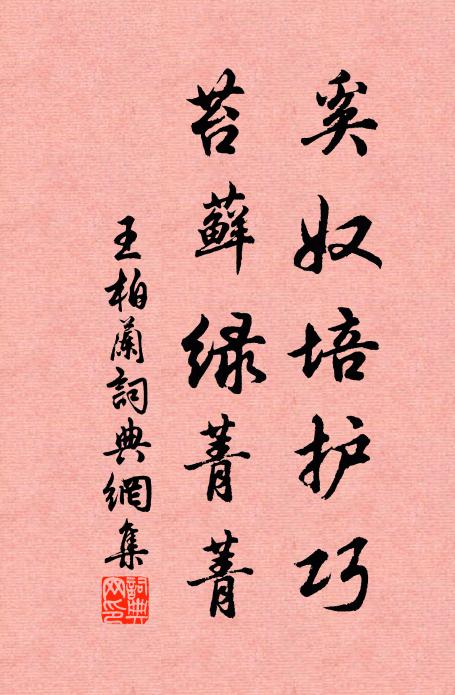 奚奴培护巧
苔藓绿菁菁
王柏蘭詞典網集
詞典网印